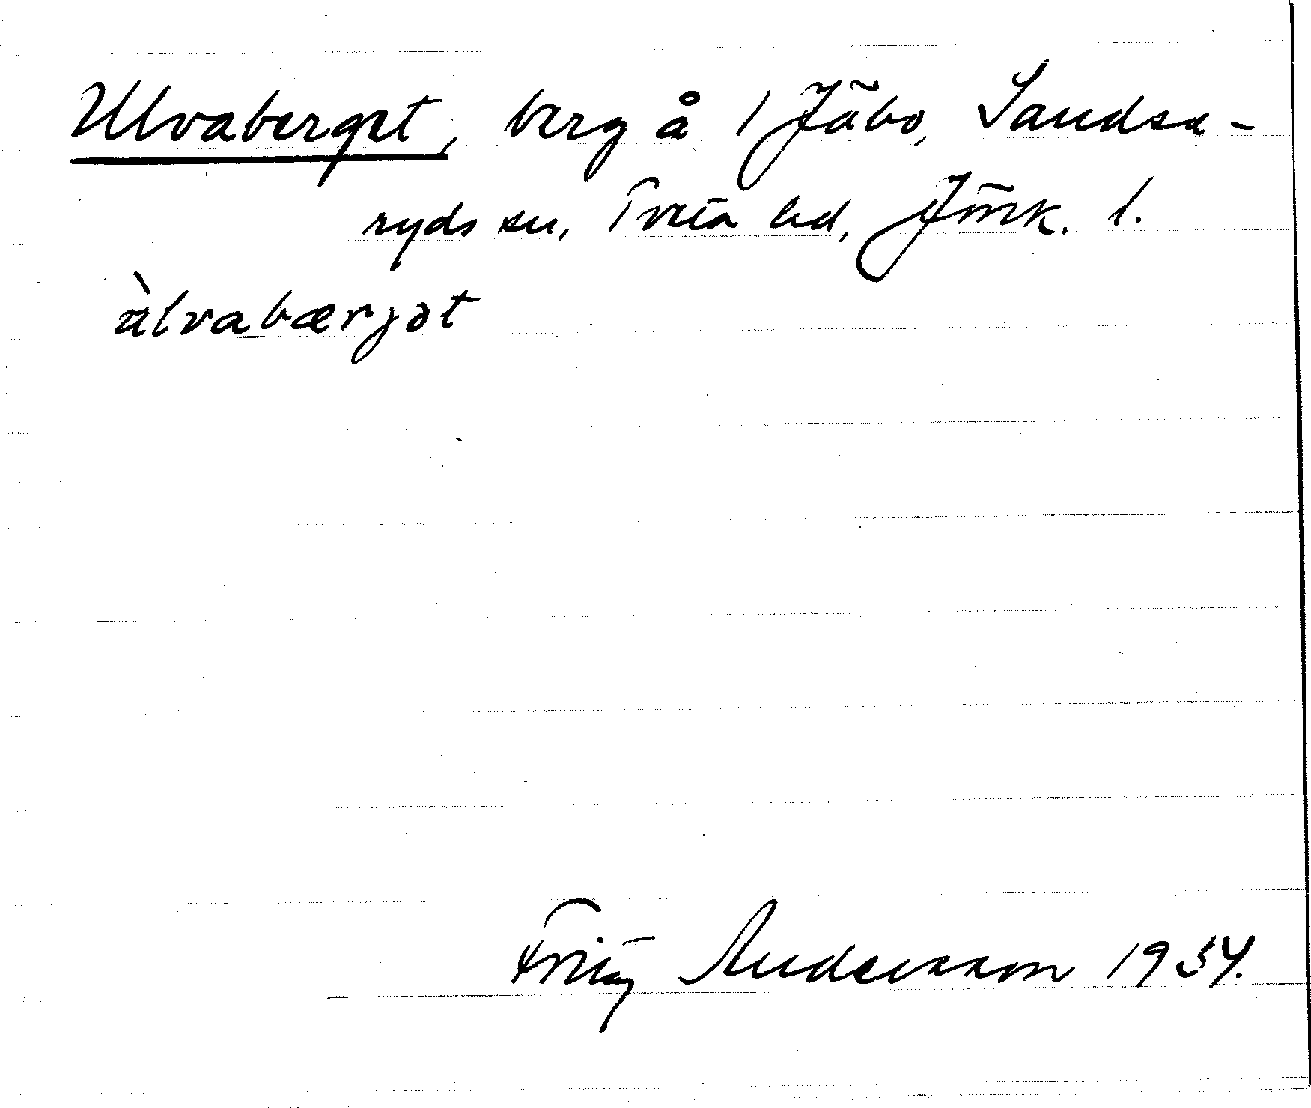 Ulvaberget, berg å 1 Jäbo, Sandsa-
ryds sn, Tveta hd, Jönk. l.
ùlvabærjət
Fritz Andersson 1934.